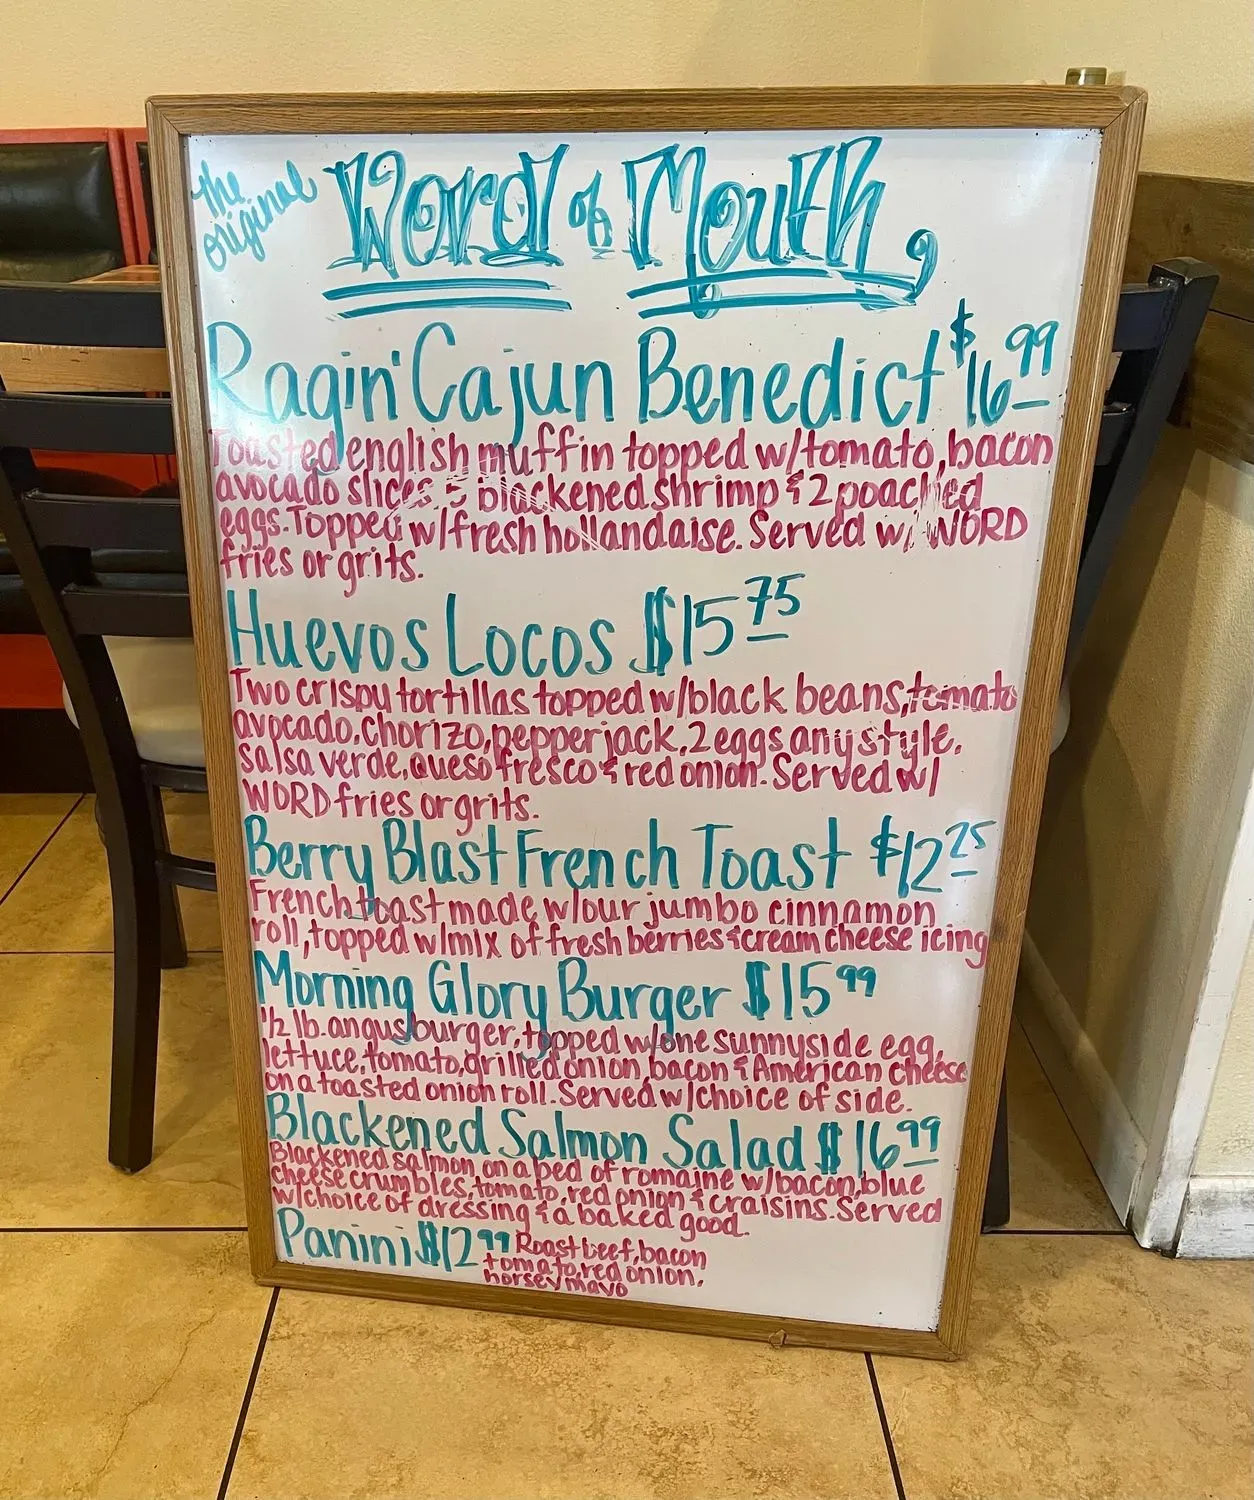 the original Word of Mouth,
Ragin' Cajun Benedict $16.99
Toasted english muffin topped w/tomato, bacon
avocado slices, 5 blackened shrimp & 2 poached
eggs. Topped w/fresh hollandaise. Served w/ WORD
fries or grits.
Huevos Locos $15.75
Two crispy tortillas topped w/black beans, tomato
avocado, chorizo, pepperjack, 2 eggs any style,
salsa verde, queso fresco & red onion. Served w/
WORD fries or grits.
Berry Blast French Toast $12.25
French toast made w/our jumbo cinnamon
roll, topped w/mix of fresh berries & cream cheese icing
Morning Glory Burger $15.99
1/2 lb. angus burger, topped w/one sunnyside egg,
lettuce, tomato, grilled onion, bacon & American cheese
on a toasted onion roll. Served w/choice of side.
Blackened Salmon Salad $16.99
Blackened salmon on a bed of romaine w/bacon, blue
cheese crumbles, tomato, red onion & craisins. Served
w/choice of dressing & a baked good.
Panini $12.99 Roast beef, bacon
tomato, red onion,
horsey mayo